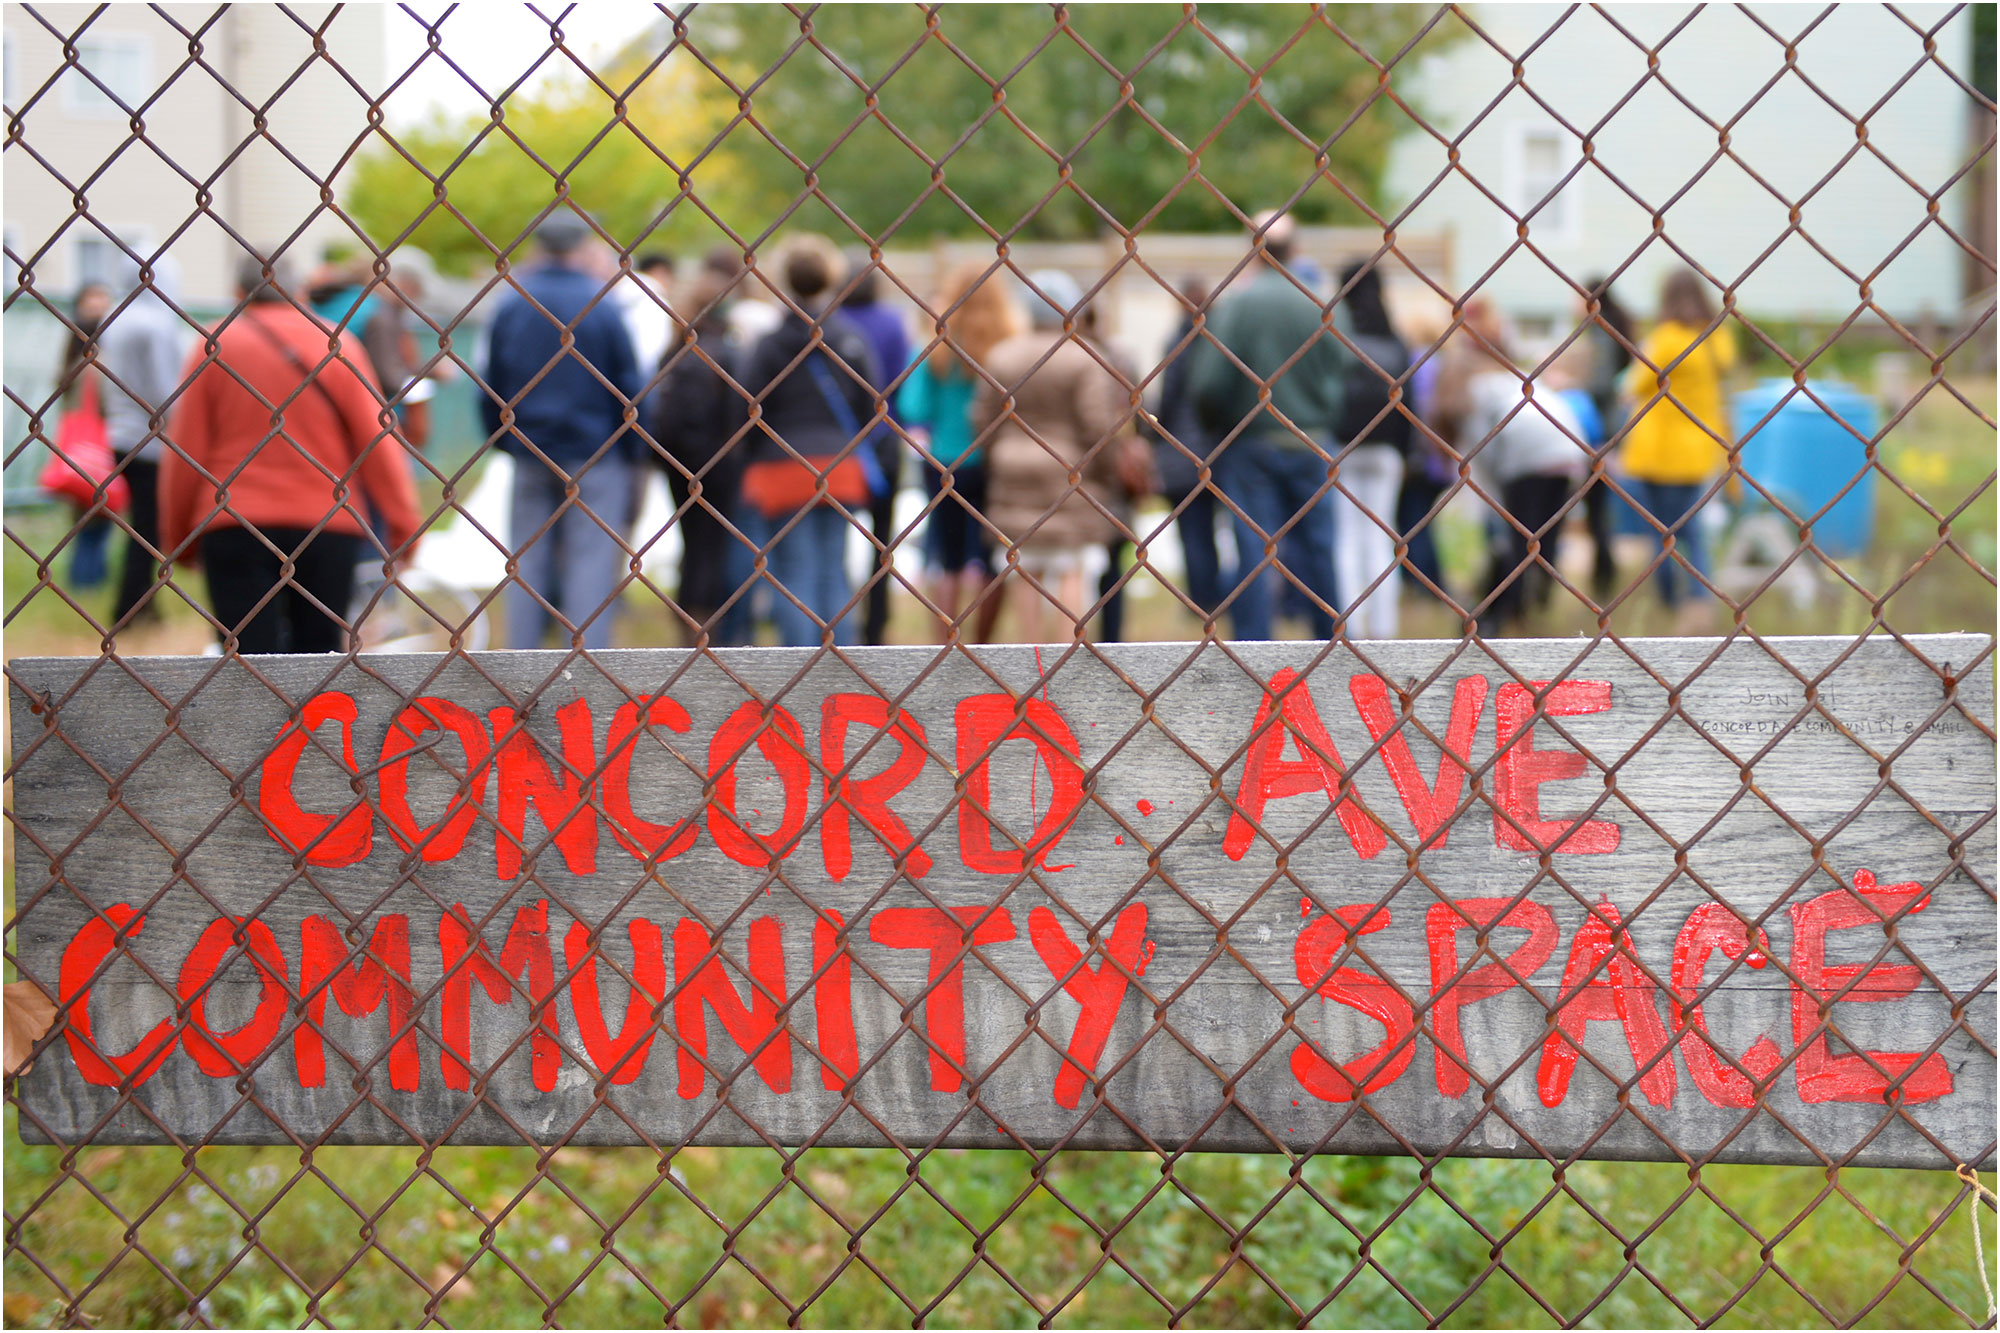 CONCORD AVE
COMMUNITY SPACE
JOIN US!
CONCORD AVE COMMUNITY @ GMAIL